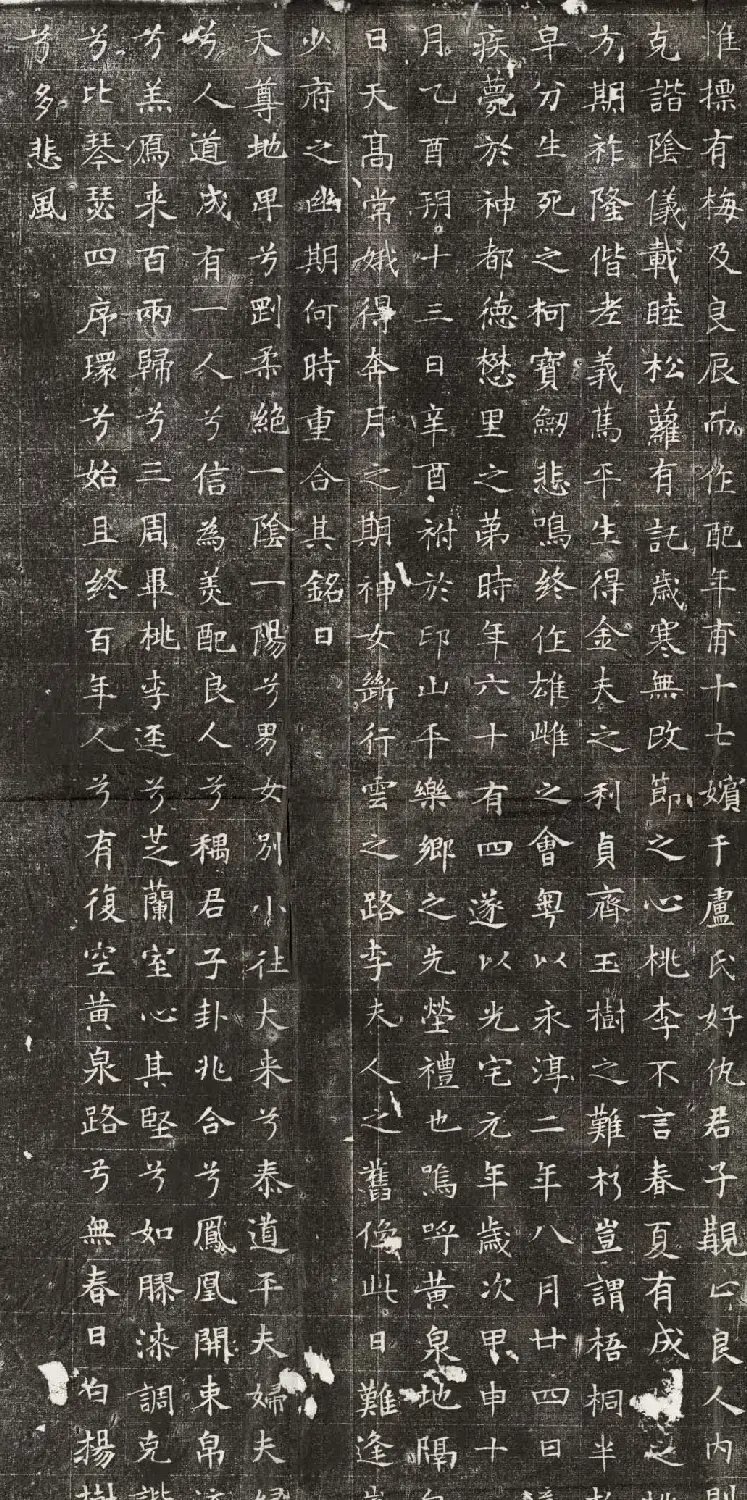 惟摽有梅及良辰而作配年甫十七嬪于盧氏好仇君子覯止良人內則
克諧陰儀載睦松蘿有託歲寒無改節之心桃李不言春夏有成之
方期祚隆偕老義篤平生得金夫之利貞齊玉樹之難朽豈謂梧桐半
早分生死之柯寶劒悲鳴終作雄雌之會粵以永淳二年八月廿四日
疾薨於神都德懋里之第時年六十有四遂以光宅元年歲次甲申十
月乙酉朔十三日辛酉祔於印山平樂鄉之先塋禮也嗚呼黃泉地隔
日天高常娥得奔月之期神女斷行雲之路李夫人之舊此日難逢
少府之幽期何時重合其銘曰
天尊地卑兮剛柔絶一陰一陽兮男女別小往大来兮泰道平夫婦夫婦
兮人道成有一人兮信為美配良人兮稱君子卦兆合兮鳳凰開束帛
兮羔鴈来百兩歸兮三周畢桃李逕兮芝蘭室心其堅兮如膠漆調克諧
兮比琴瑟四序環兮始且終百年人兮有復空黃泉路兮無春日白楊樹
兮多悲風